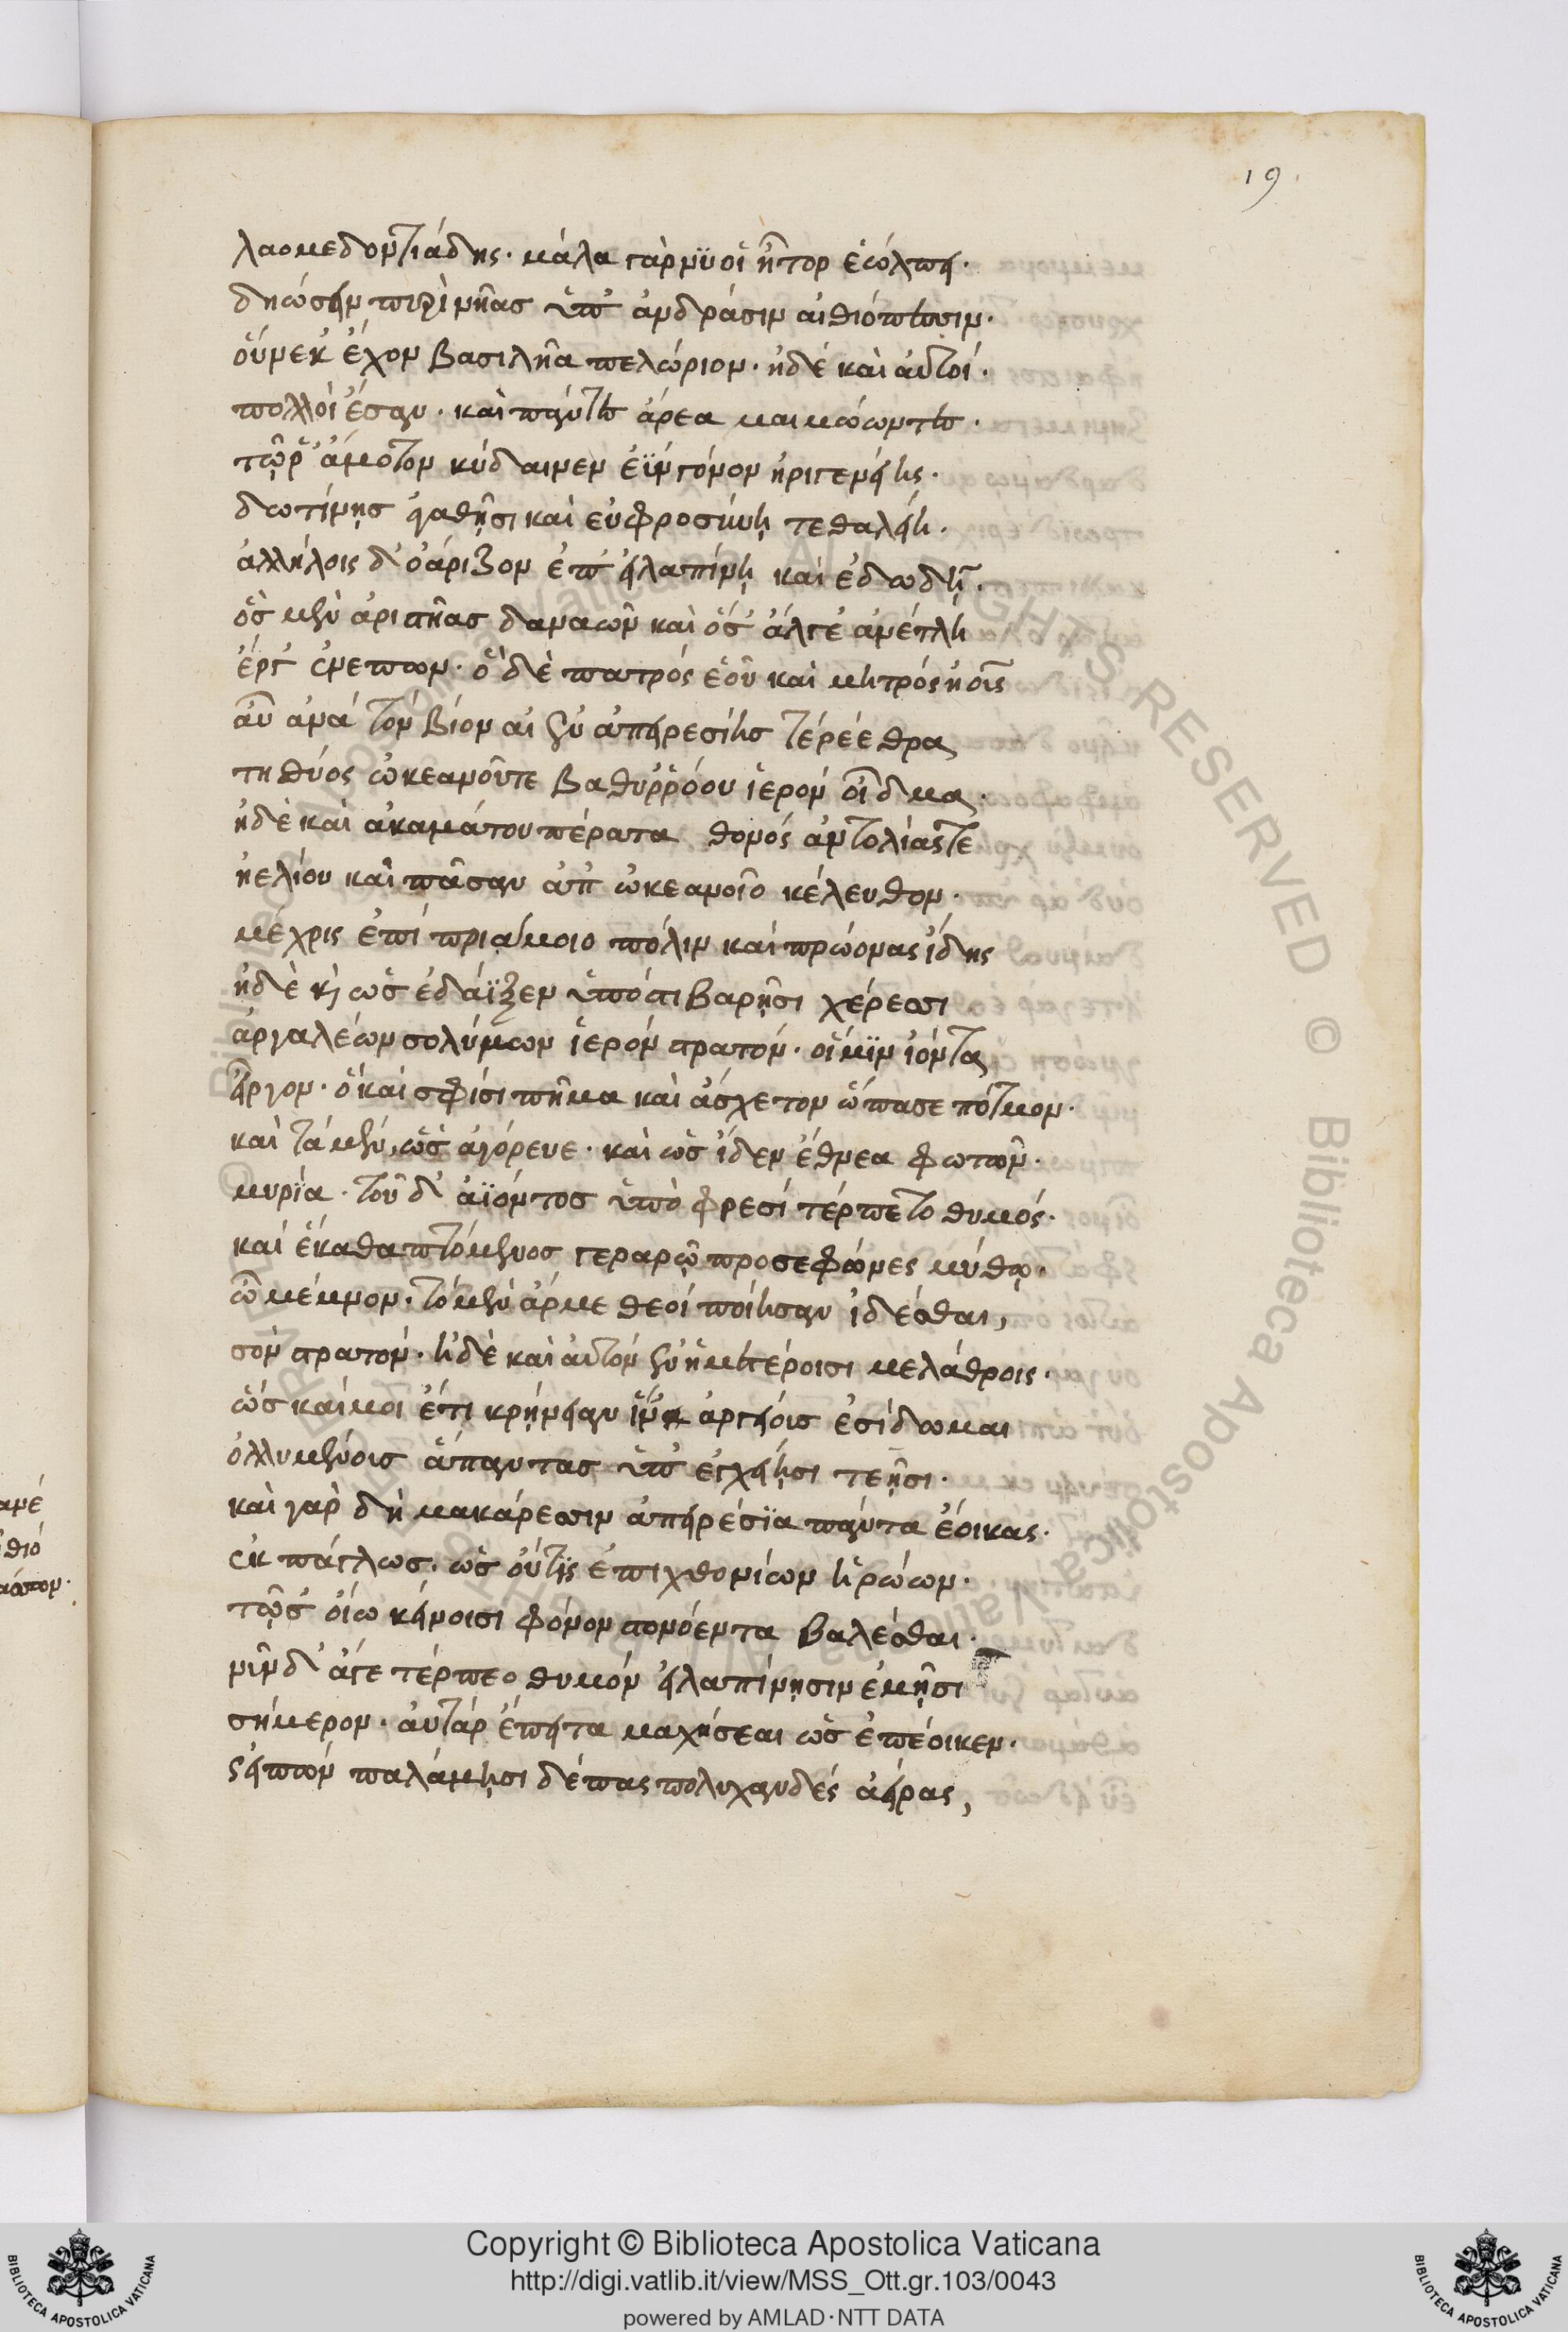 19.
λαομεδοντιάδης· μάλα γὰρ νϋ οἱ ἦτορ ἐώλπει·
δηώσειν πυρὶ νῆας ὑπ' ἀνδράσιν αἰθιόπεσσιν·
οὕνεκ' ἔχον βασιλῆα πελώριον· ἠδὲ καὶ αὐτοί·
πολλοὶ ἔσαν· καὶ πάντες ἄρεα μαιμώωντες·
τῷ ῥ' ἄμοτον κύδαινεν ἐῢν γόνον ἠριγενείης·
δωτίνῃς ἀγαθῇσι καὶ εὐφροσύνῃ τεθαλείη·
ἀλλήλοις δ' ὀάριζον ἐπ' εἰλαπίνῃ καὶ ἐδωδῇ·
ὃς μὲν ἀριστῆας δαναῶν καὶ ὅσ' ἄλγε' ἀνέτλη
ἔργ' ἐνεπων· ὃ δὲ πατρός ἑοῦ καὶ μητρός ἠοῦς
αὖ ἀνα τὸν βίον αἰεν ἀπειρεσίης τε ῥέεθρα
τηθύος ὠκεανοῦτε βαθυῤῥόου ἱερὸν οἶδμα·
ἠδὲ καὶ ἀκαμάτου πέρατα θονός ἀντολίας τε
ἠελίου καὶ πᾶσαν ἀπ' ὠκεανοῖο κέλευθον·
μέχρις ἐπὶ πριάμοιο πόλιν καὶ πρώονας ἴδης
ἠδὲ κ(αὶ) ὡς ἐδάϊξεν ὑπὸ στιβαρῇσι χέρεσσι
ἀργαλέων σολύμων ἱερὸν στρατόν· οἵ μϊν ἰόντα
εἶργον· ὃ καί σφίσι πῆμα καὶ ἄσχετον ὤπασε πότμον·
καὶ τὰ μὲν, ὣς ἀγόρευε· καὶ ὡς ἴδεν ἔθνεα φωτῶν·
μυρϊα· τοῦ δ' ἀϊόντος ὑπὸ φρεσὶ τέρπετο θυμός·
καὶ ἑ καθαπτόμενος γεραρῷ προσεφώνες μύθῳ·
ὦ μέμνον· τὸ μὲν ἄρ με θεοί ποίησαν ἰδέσθαι,
σὸν στρατόν· ἠδὲ καὶ αὐτὸν ἐν ἡμετέροισι μελάθροις·
ὥς καί μοι ἔτι κρήνειαν ἵν' ἀργείοις ἐσίδωμαι
ὀλλυμένοις ἅπαντας ὑπ' ἐγχείῃσι τεῇσι·
καὶ γὰρ δὴ μακάρεσσιν ἀπειρέσϊα πάντα ἔοικας·
ἐκ πάγλως· ὡς οὔτις ἐπιχθονίων ἡρώων·
τῷ σ' οἴω κείνοισι φόνον στονόεντα βαλέσθαι·
νῦν δ' ἄγε τέρπεο θυμόν εἰλαπίνῃσιν ἐμῇσι
σήμερον· αὐτὰρ ἔπειτα μαχήσεαι ὡς ἐπέοικεν·
ς εἰπὼν παλάμῃσι δέπας πολυχανδές ἀείρας,
Copyright © Biblioteca Apostolica Vaticana
http://digi.vatlib.it/view/MSS_Ott.gr.103/0043
powered by AMLAD·NTT DATA